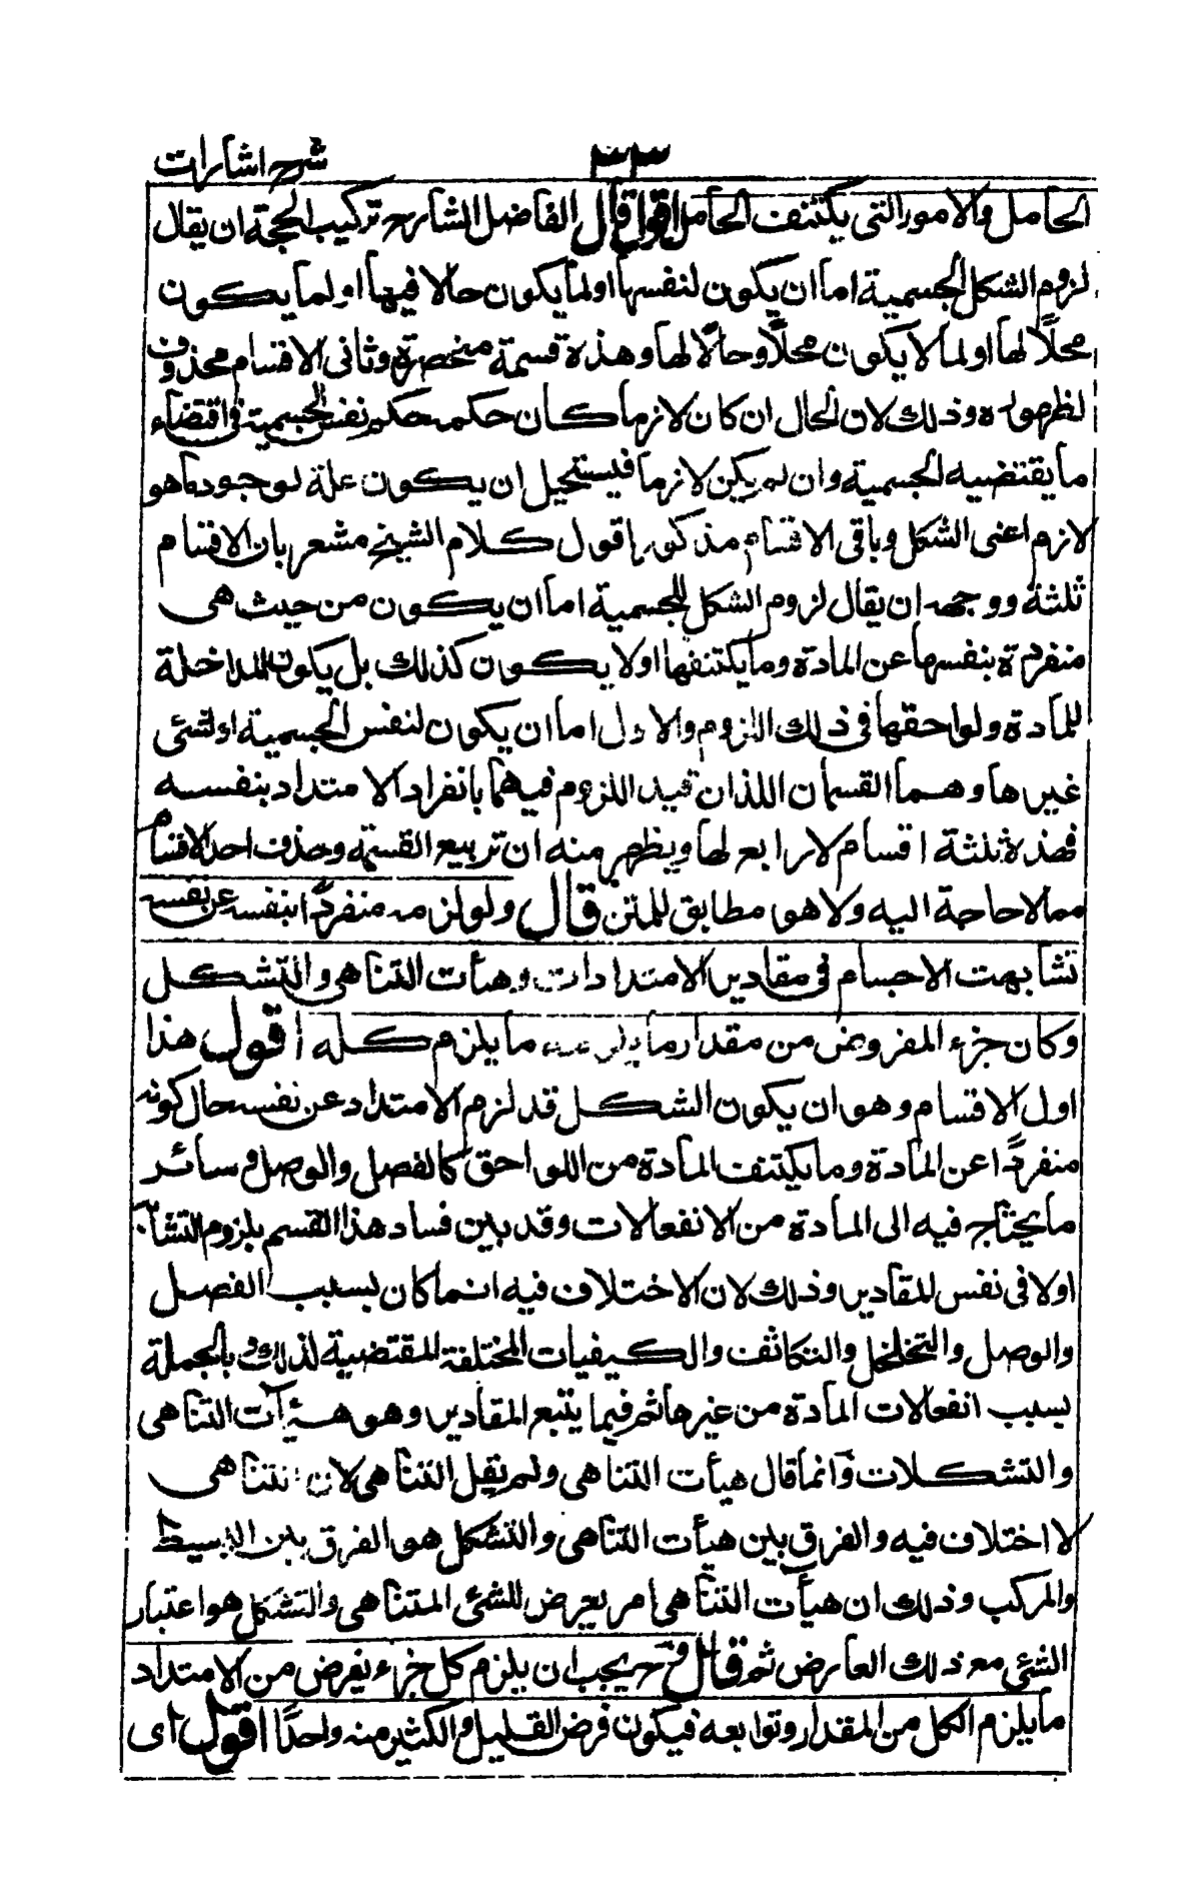 ٢٣ شرح اشارات
الحامل والامور التى يكتنف الحامل اقول قال الفاضل الشارح تركيب الحجة ان يقال
لزوم الشكل الجسمية اما ان يكون لنفسها او لما يكون حالا فيها او لما يكون
محلًا لها او لما لا يكون محلًا و حالًا لها وهذه قسمة منحصرة و ثانى الاقسام محذوف
لظهوره وذلك لان الحال ان كان لازما كان حكمه حكم نفس الجسمية فى اقتضاء
ما يقتضيه الجسمية وان لم يكن لازما فيستحيل ان يكون علة لوجود ما هو
لازم اعنى الشكل وباقى الاقسام مذكور اقول كلام الشيخ مشعر بان الاقسام
ثلثة ووجهه ان يقال لزوم الشكل للجسمية اما ان يكون من حيث هى
منفردة بنفسها عن المادة وما يكتنفها او لا يكون كذلك بل يكون المداخلة
للمادة ولواحقها فى ذلك اللزوم والاول اما ان يكون لنفس الجسمية او لشئ
غيرها وهما القسمان اللذان قيد اللزوم فيهما بانفراد الامتداد بنفسه
فهذه ثلثة اقسام لا رابع لها ويظهر منه ان تربيع القسمة وحذف احد الاقسام
مما لا حاجة اليه ولا هو مطابق للمتن قال ولو لزمه منفردًا بنفسه عن نفسه
تشابهت الاجسام فى مقادير الامتدادات وهيأت التناهى والتشكل
وكان جزء المفروض من مقدار ما يلزمه ما يلزم كله اقول هذا
اول الاقسام وهو ان يكون الشكل قد لزم الامتداد عن نفسه حال كونه
منفردًا عن المادة وما يكتنف المادة من اللواحق كالفصل والوصل و سائر
ما يحتاج فيه الى المادة من الانفعالات وقد بين فساد هذا القسم بلزوم التشابه
اولا فى نفس المقادير وذلك لان الاختلاف فيه انما كان بسبب الفصل
والوصل والتخلخل والتكاثف والكيفيات المختلفة المقتضية لذلك و بالجملة
بسبب انفعالات المادة من غيرها ثم فيما يتبع المقادير وهو هيآت التناهى
والتشكلات وانما قال هيأت التناهى ولم يقل التناهى لان التناهى
لا اختلاف فيه والفرق بين هيأت التناهى والتشكل هو الفرق بين البسيط
والمركب وذلك ان هيأت التناهى امر يعرض للشئ المتناهى والتشكل هو اعتبار
الشئ مع ذلك العارض ثم قال وح يجب ان يلزم كل جزء يفرض من الامتداد
ما يلزم الكل من المقدار وتوابعه فيكون فرض القليل والكثير منه واحدًا اقول اى